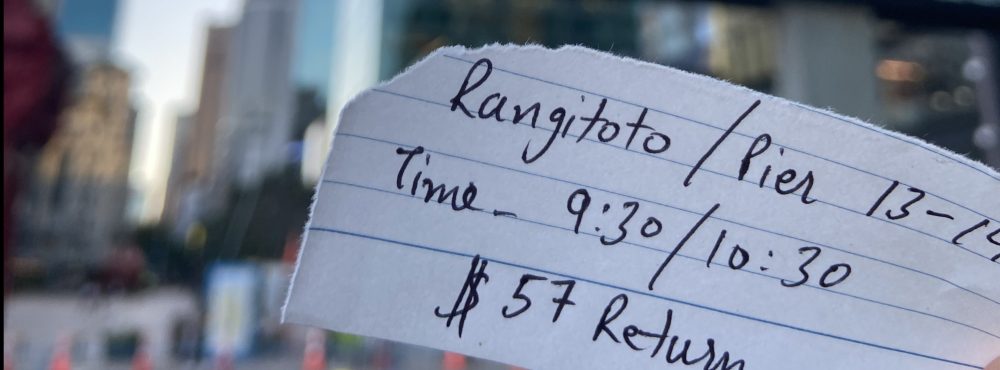 Rangitoto / Pier 13-14
Time - 9:30 / 10:30
$ 57 Return